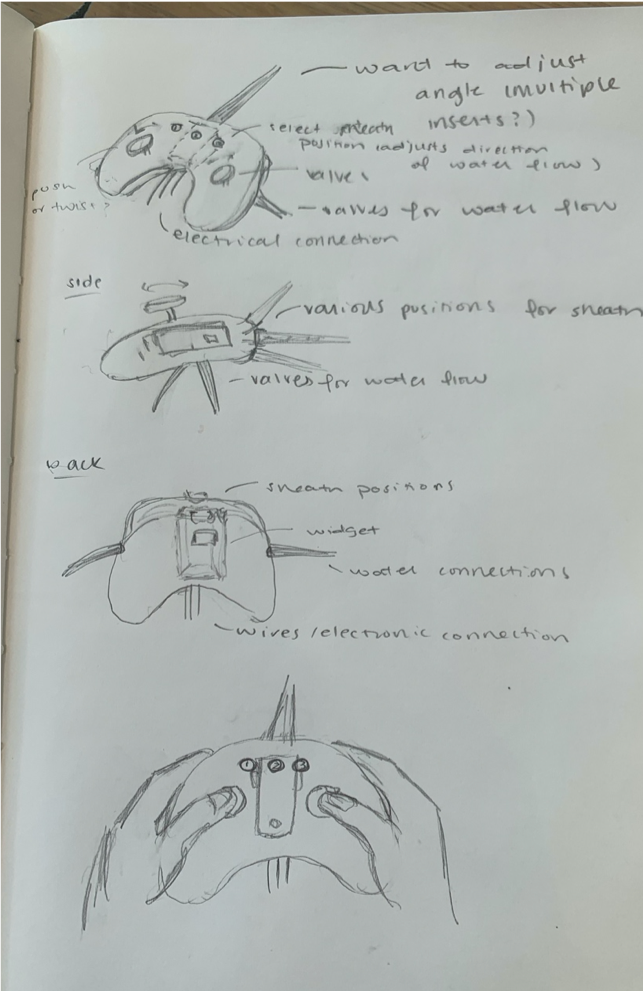 want to adjust
angle (multiple
inserts?)
select sheath
position (adjusts direction
of water flow)
valves
push
or twist?
valves for water flow
electrical connection
side
various positions for sheath
valves for water flow
back
sheath positions
widget
water connections
wires/electronic connection
1 2 3